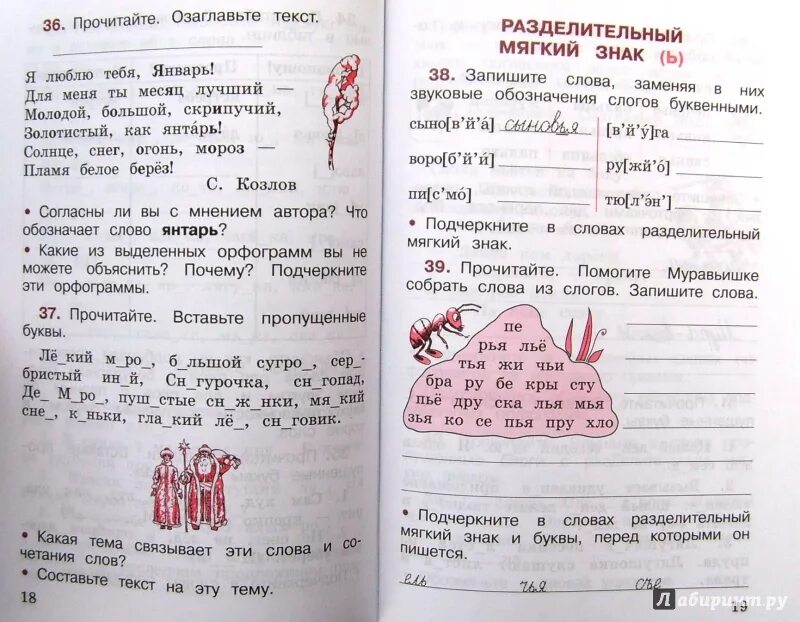 36. Прочитайте. Озаглавьте текст.
Я люблю тебя, Январь!
Для меня ты месяц лучший —
Молодой, большой, скрипучий,
Золотистый, как янтарь!
Солнце, снег, огонь, мороз —
Пламя белое берёз!
С. Козлов
• Согласны ли вы с мнением автора? Что
обозначает слово янтарь?
• Какие из выделенных орфограмм вы не
можете объяснить? Почему? Подчеркните
эти орфограммы.
37. Прочитайте. Вставьте пропущенные
буквы.
Лё_кий м_ро_, б_льшой сугро_, сер_-
бристый ин_й, Сн_гурочка, сн_гопад,
Де_ М_ро_, пуш_стые сн_ж_нки, мя_кий
сне_, к_ньки, гла_кий лё_, сн_говик.
• Какая тема связывает эти слова и со-
четания слов?
• Составьте текст на эту тему.
18
РАЗДЕЛИТЕЛЬНЫЙ
МЯГКИЙ ЗНАК (Ь)
38. Запишите слова, заменяя в них
звуковые обозначения слогов буквенными.
сыно[в'й'а́] сыновья [в'й'у́]га
воро[б'й'и́] ру[жйо́]
пи[с'мо́] тю[л'э́н']
• Подчеркните в словах разделительный
мягкий знак.
39. Прочитайте. Помогите Муравьишке
собрать слова из слогов. Запишите слова.
пе
рья льё
тья жи чьи
бра ру бе кры сту
пьё дру ска лья мья
зья ко се пья пру хло
• Подчеркните в словах разделительный
мягкий знак и буквы, перед которыми он
пишется.
ель чья съе
19
Лабиринт.ру